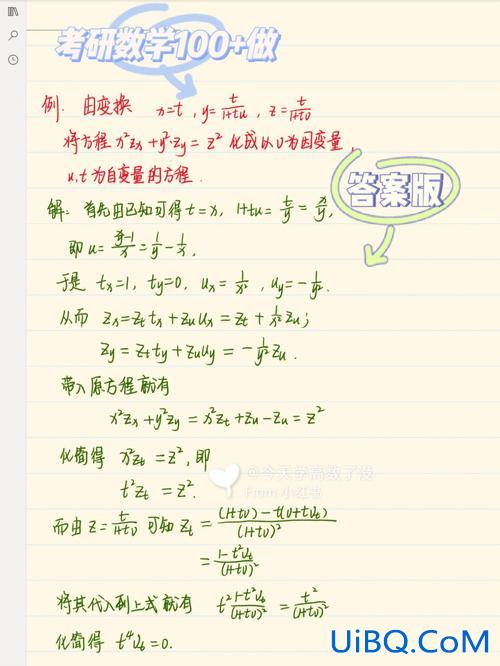 考研数学100+做
例. 由变换 x=t, y=t/(1+tu), z=t/(1+tv)
将方程 x²z_x+y²z_y=z² 化成以v为因变量,
u,t为自变量的方程.
答案版
解: 首先由已知可得 t=x, 1+tu=t/y=x/y,
即 u=(x/y-1)/x=1/y-1/x,
于是 t_x=1, t_y=0, u_x=1/x², u_y=-1/y².
从而 z_x=z_t t_x+z_u u_x=z_t+1/x² z_u;
z_y=z_t t_y+z_u u_y=-1/y² z_u.
带入原方程就有
x²z_x+y²z_y=x²z_t+z_u-z_u=z²
化简得 x²z_t=z², 即
t²z_t=z².
@今天学高数了没
From 小红书
而由 z=t/(1+tv) 可知 z_t=((1+tv)-t(v+tv_t))/(1+tv)²
=(1-t²v_t)/(1+tv)²
将其代入到上式就有 t²(1-t²v_t)/(1+tv)²=t²/(1+tv)²
化简得 t⁴v_t=0.
UiBQ.CoM